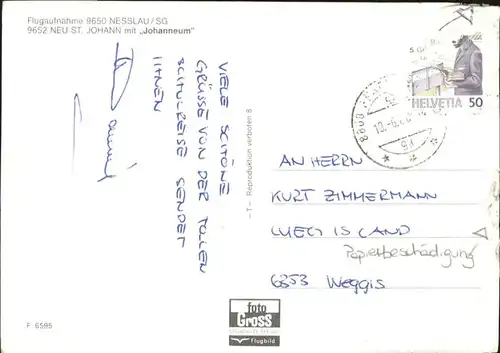 Flugaufnahme 9650 NESSLAU/SG
9652 NEU ST. JOHANN mit „Johanneum"
VIELE SCHÖNE
GRÜSSE VON DER TOLLEN
SCHULREISE SENDET
IHNEN
Daniel
-T- Reproduktion verboten 8
HELVETIA 50
AN HERRN
KURT ZIMMERMANN
LUEG IS LAND
Papierbeschädigung
6353 Weggis
foto
Gross
Flugbild
F 6595